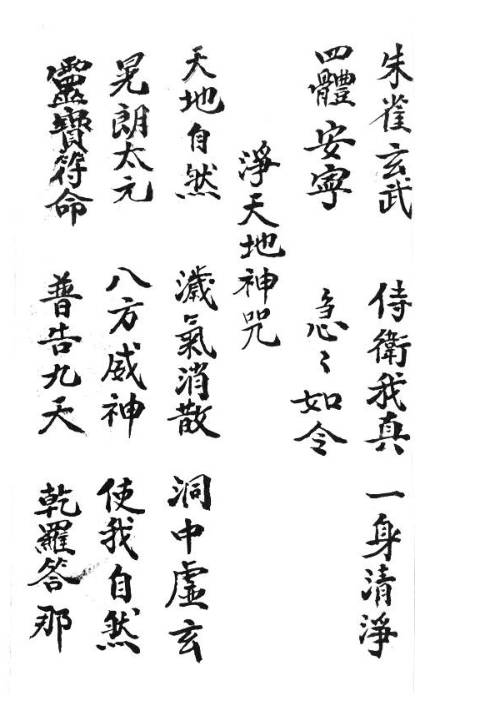 朱雀玄武 侍衛我真 一身清淨
四體安寧 急〻如令
淨天地神咒
天地自然 濊氣消散 洞中虛玄
晃朗太元 八方威神 使我自然
靈寶符命 普告九天 乾羅答那